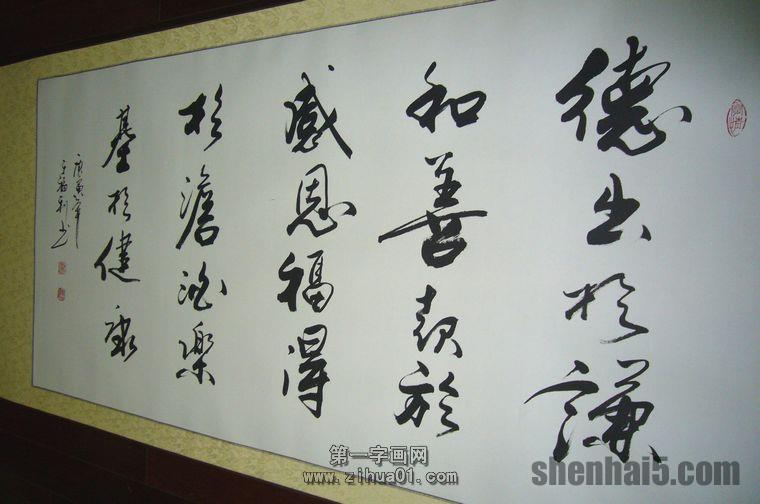 德出於謙
和善表於
感恩福得
於澹泊樂
基於健康
庚寅年
福利书
第一字画网
www.zihua01.com
shenhai5.com